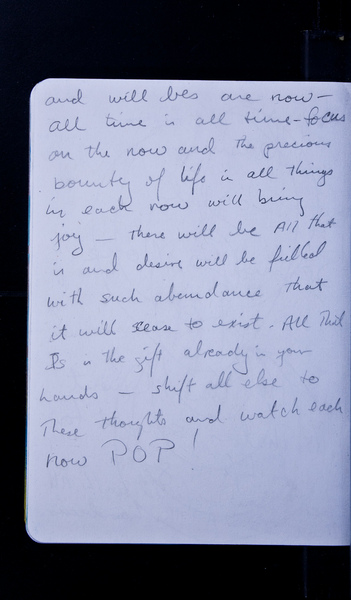 and will bes are now –
all time is all time – focus
on the now and the precious
bounty of life is all things
in each now will bring
joy – there will be All that
is and desire will be filled
with such abundance that
it will cease to exist. All That
Is is the gift already in your
hands – shift all else to
These thoughts and watch each
now POP!